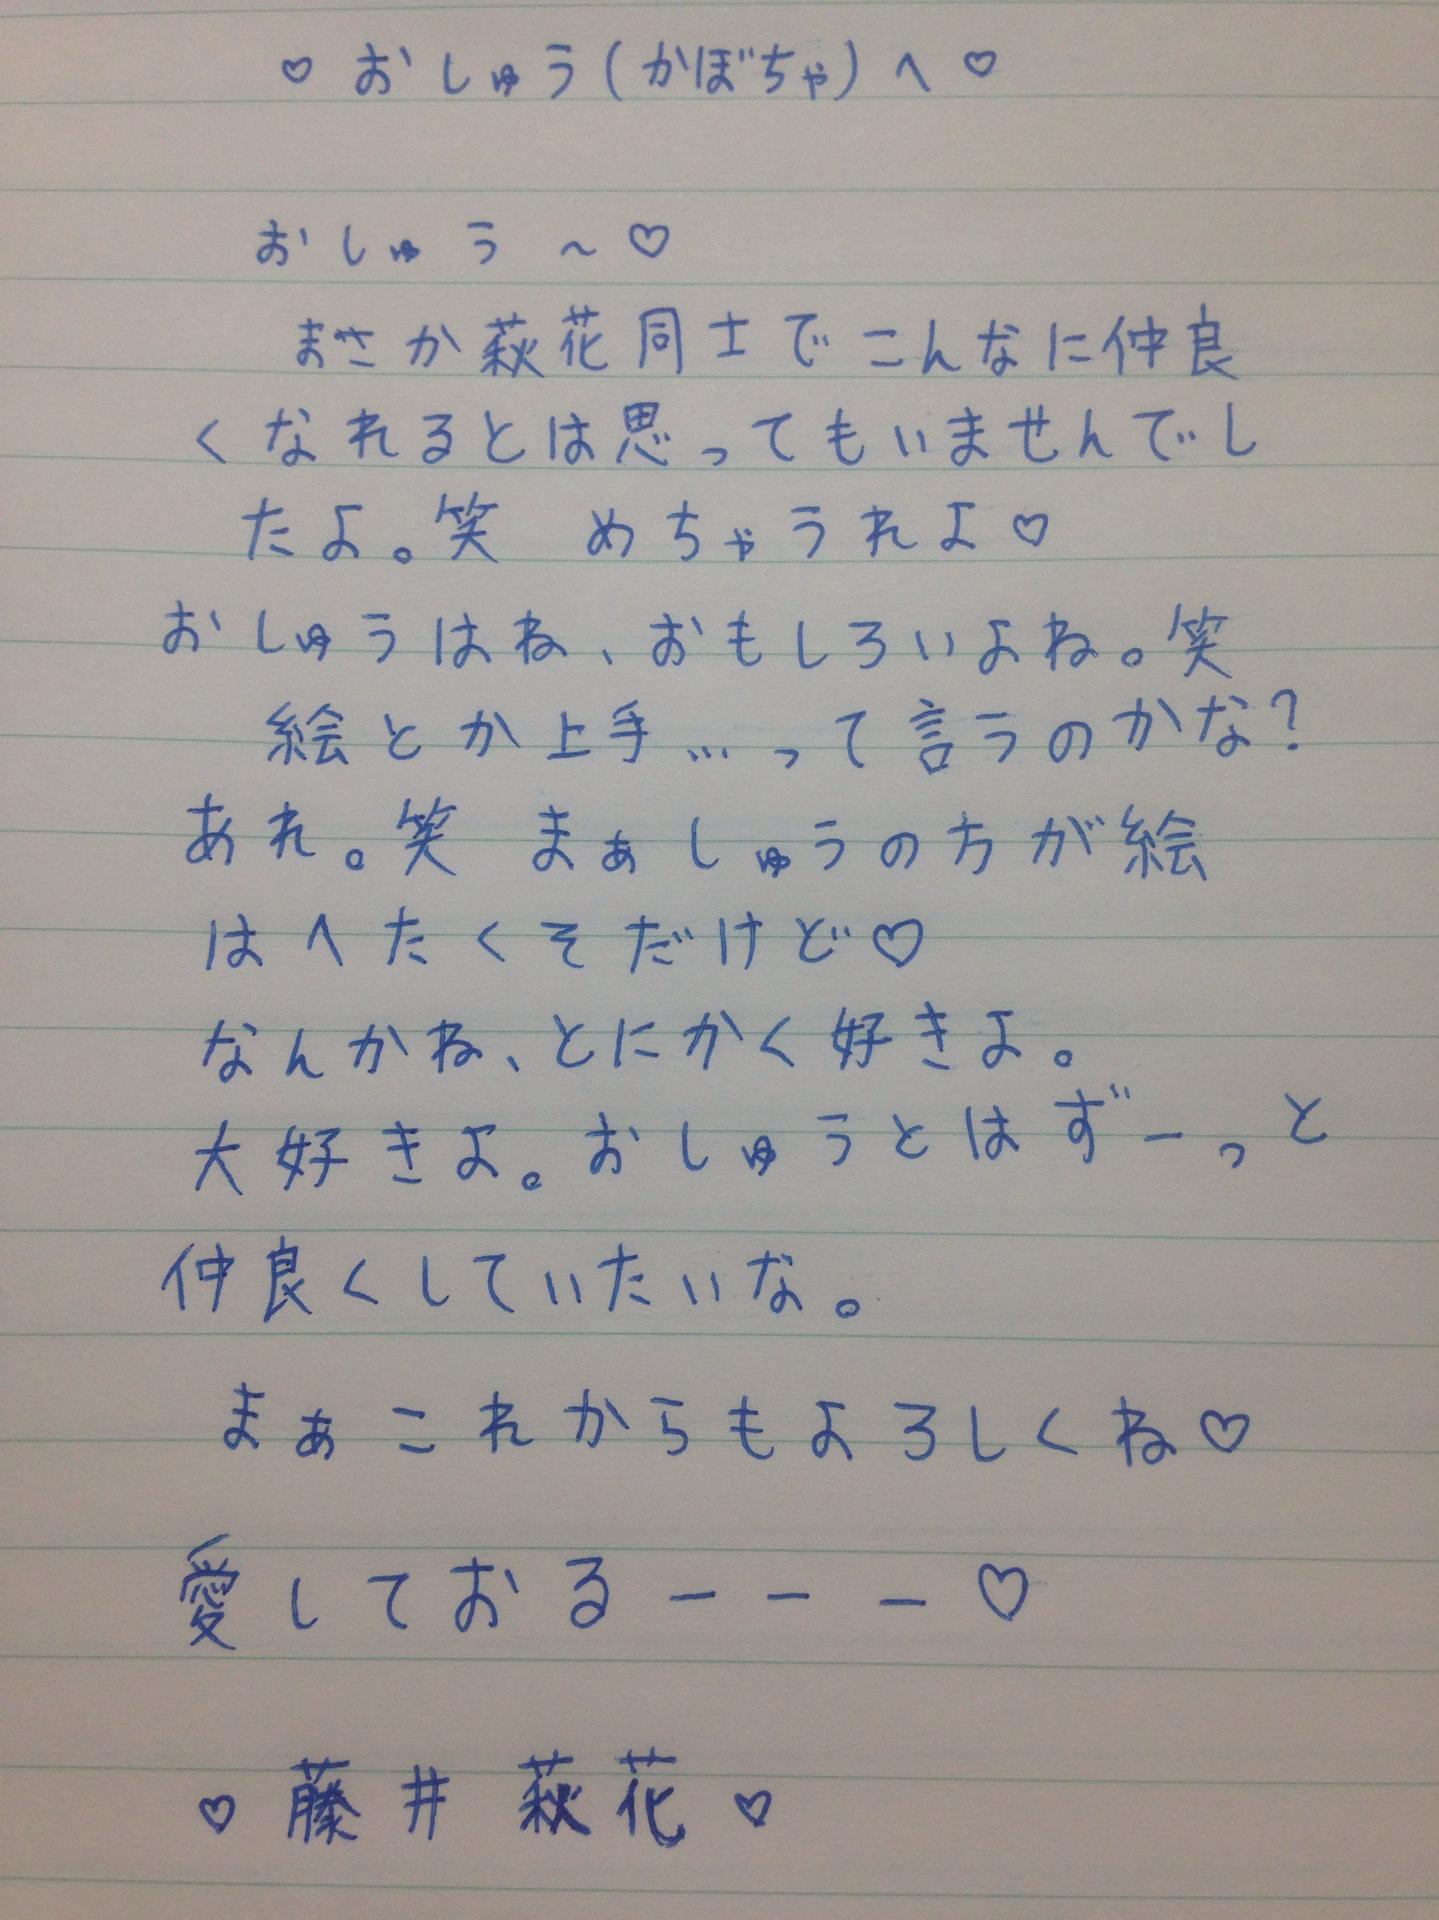 ♡ おしゅう(かぼちゃ)へ ♡
おしゅう～♡
まさか萩花同士でこんなに仲良
くなれるとは思ってもいませんでし
たよ。笑 めちゃうれよ♡
おしゅうはね、おもしろいよね。笑
絵とか上手…って言うのかな？
あれ。笑 まぁしゅうの方が絵
はへたくそだけど♡
なんかね、とにかく好きよ。
大好きよ。おしゅうとはずーっと
仲良くしていたいな。
まぁこれからもよろしくね♡
愛しておるーーー♡
♡ 藤井 萩花 ♡